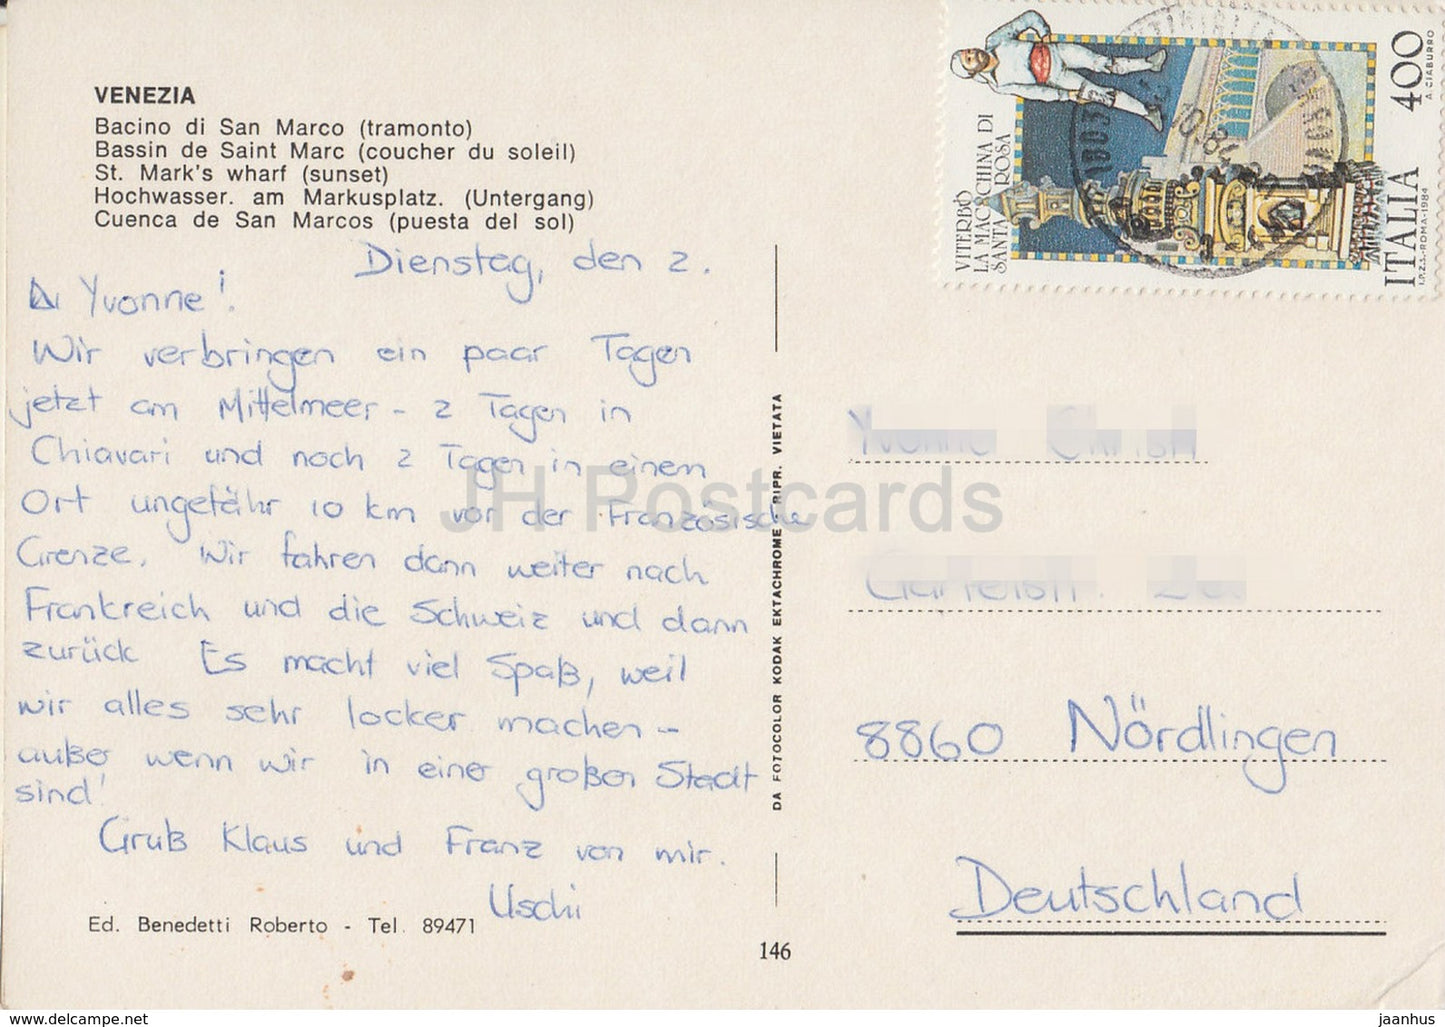 VENEZIA
Bacino di San Marco (tramonto)
Bassin de Saint Marc (coucher du soleil)
St. Mark's wharf (sunset)
Hochwasser. am Markusplatz. (Untergang)
Cuenca de San Marcos (puesta del sol)
Dienstag, den 2.
Yvonne!
Wir verbringen ein paar Tagen
jetzt am Mittelmeer - 2 Tagen in
Chiavari und noch 2 Tagen in einem
Ort ungefähr 10 km vor der Französische
Grenze. Wir fahren dann weiter nach
Frankreich und die Schweiz und dann
zurück Es macht viel Spaß, weil
wir alles sehr locker machen -
außer wenn wir in einer großen Stadt
sind!
Gruß Klaus und Franz von mir.
Uschi
Ed. Benedetti Roberto - Tel. 89471
DA FOTOCOLOR KODAK EKTACHROME - RIPR. VIETATA
146
VITERBO
LA MACCHINA DI
SANTA ROSA
ITALIA 400
I.P.Z.S.-ROMA-1984
A. CIABURRO
8860 Nördlingen
Deutschland
JH Postcards
www.delcampe.net
jaanhus